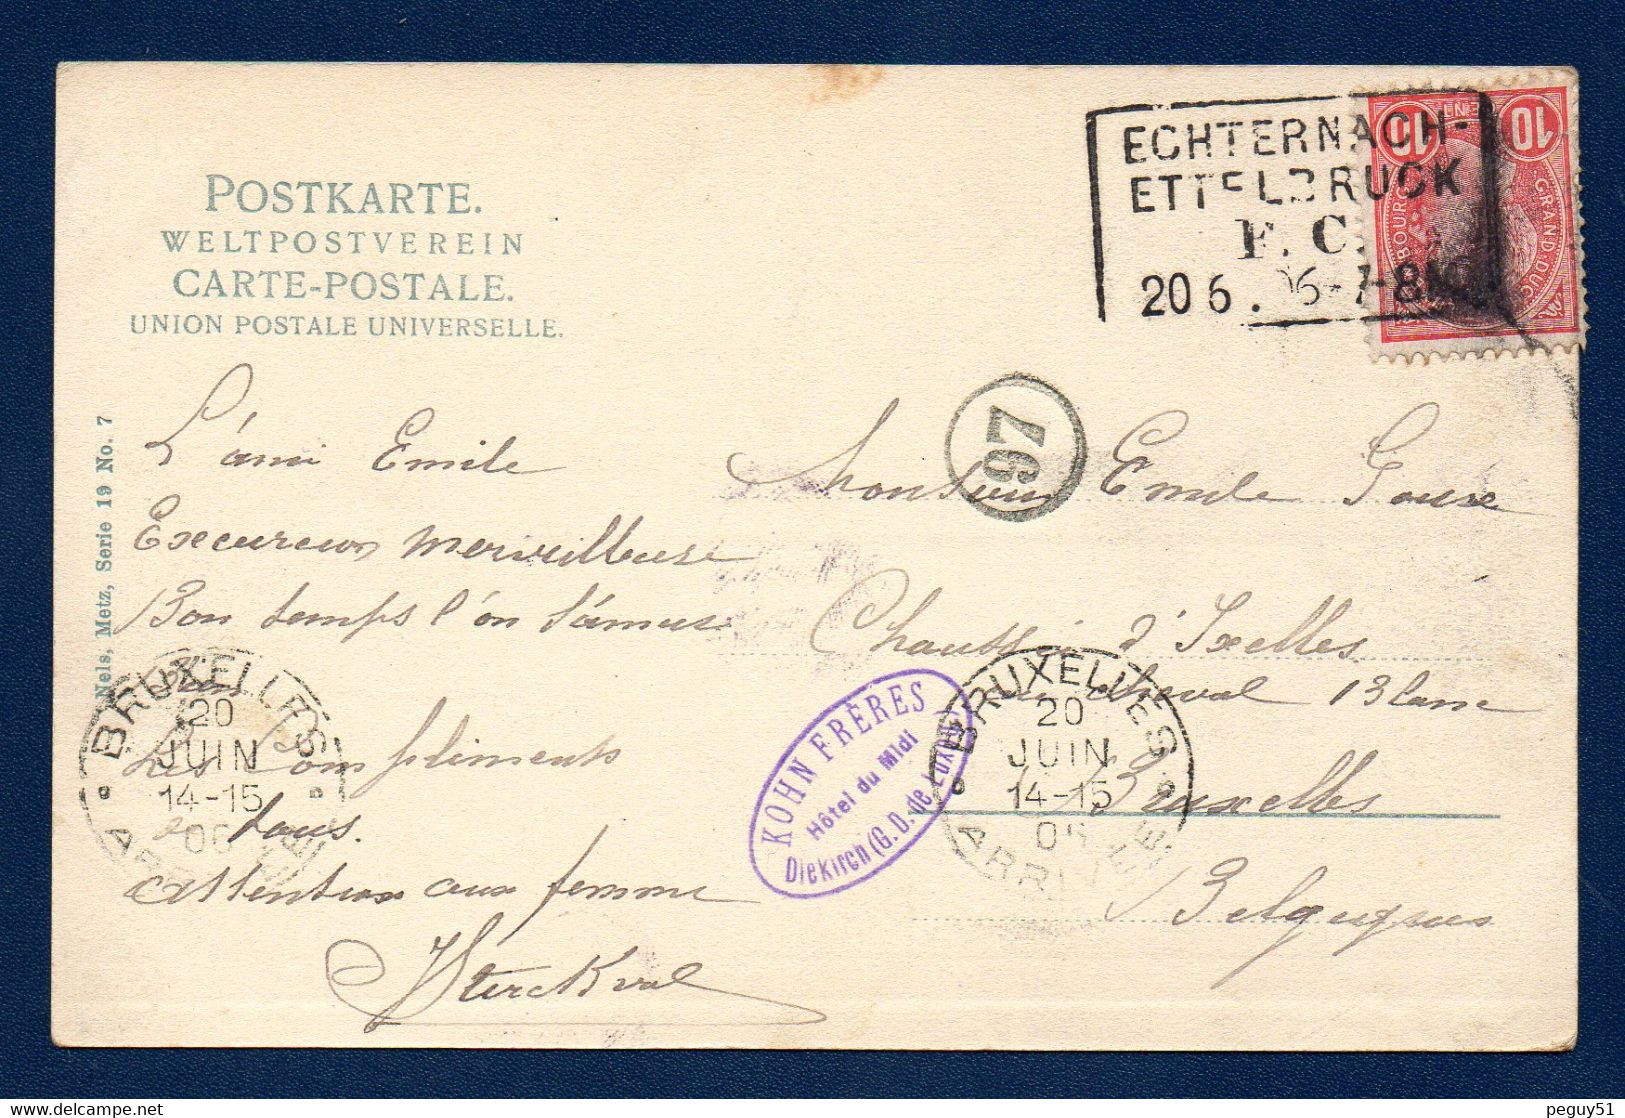 POSTKARTE.
WELTPOSTVEREIN
CARTE-POSTALE.
UNION POSTALE UNIVERSELLE.
Nels, Metz, Serie 19 No. 7
ECHTERNACH-
ETTELBRUCK
F. C.
20 6. 06-7-8
10 10
GRAND DUCH
97
L'ami Emile
Excursion merveilleuse
Bon temps l'on s'amuse
bien
Les compliments
a tous.
attention aux femme
Sterckval
Monsieur Emile Goux
Chaussée d'Ixelles
au cheval Blanc
Bruxelles
Belgiques
KOHN FRÈRES
Hôtel du Midi
Diekirch (G. D. de Luxbg)
BRUXELLES
20
JUIN
14-15
06
ARRIVEE
BRUXELLES
20
JUIN
14-15
06
ARRIVEE
peguy51